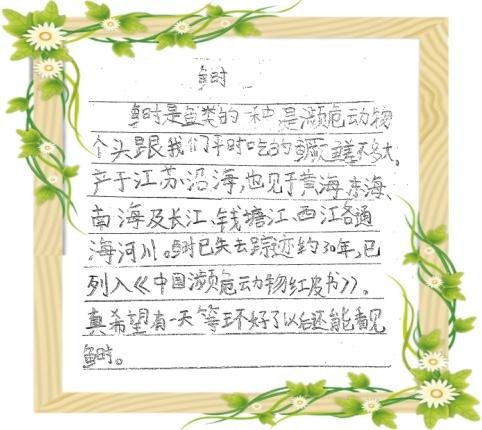 鲥
鲥是鱼类的一种是濒危动物
个头跟我们平时吃的鳊鱼差不多大。
产于江苏沿海，也见于黄海、东海、
南海及长江、钱塘江、西江各通
海河川。鲥已失去踪迹约30年，已
列入《中国濒危动物红皮书》。
真希望有一天等环境好了以后还能看见
鲥。